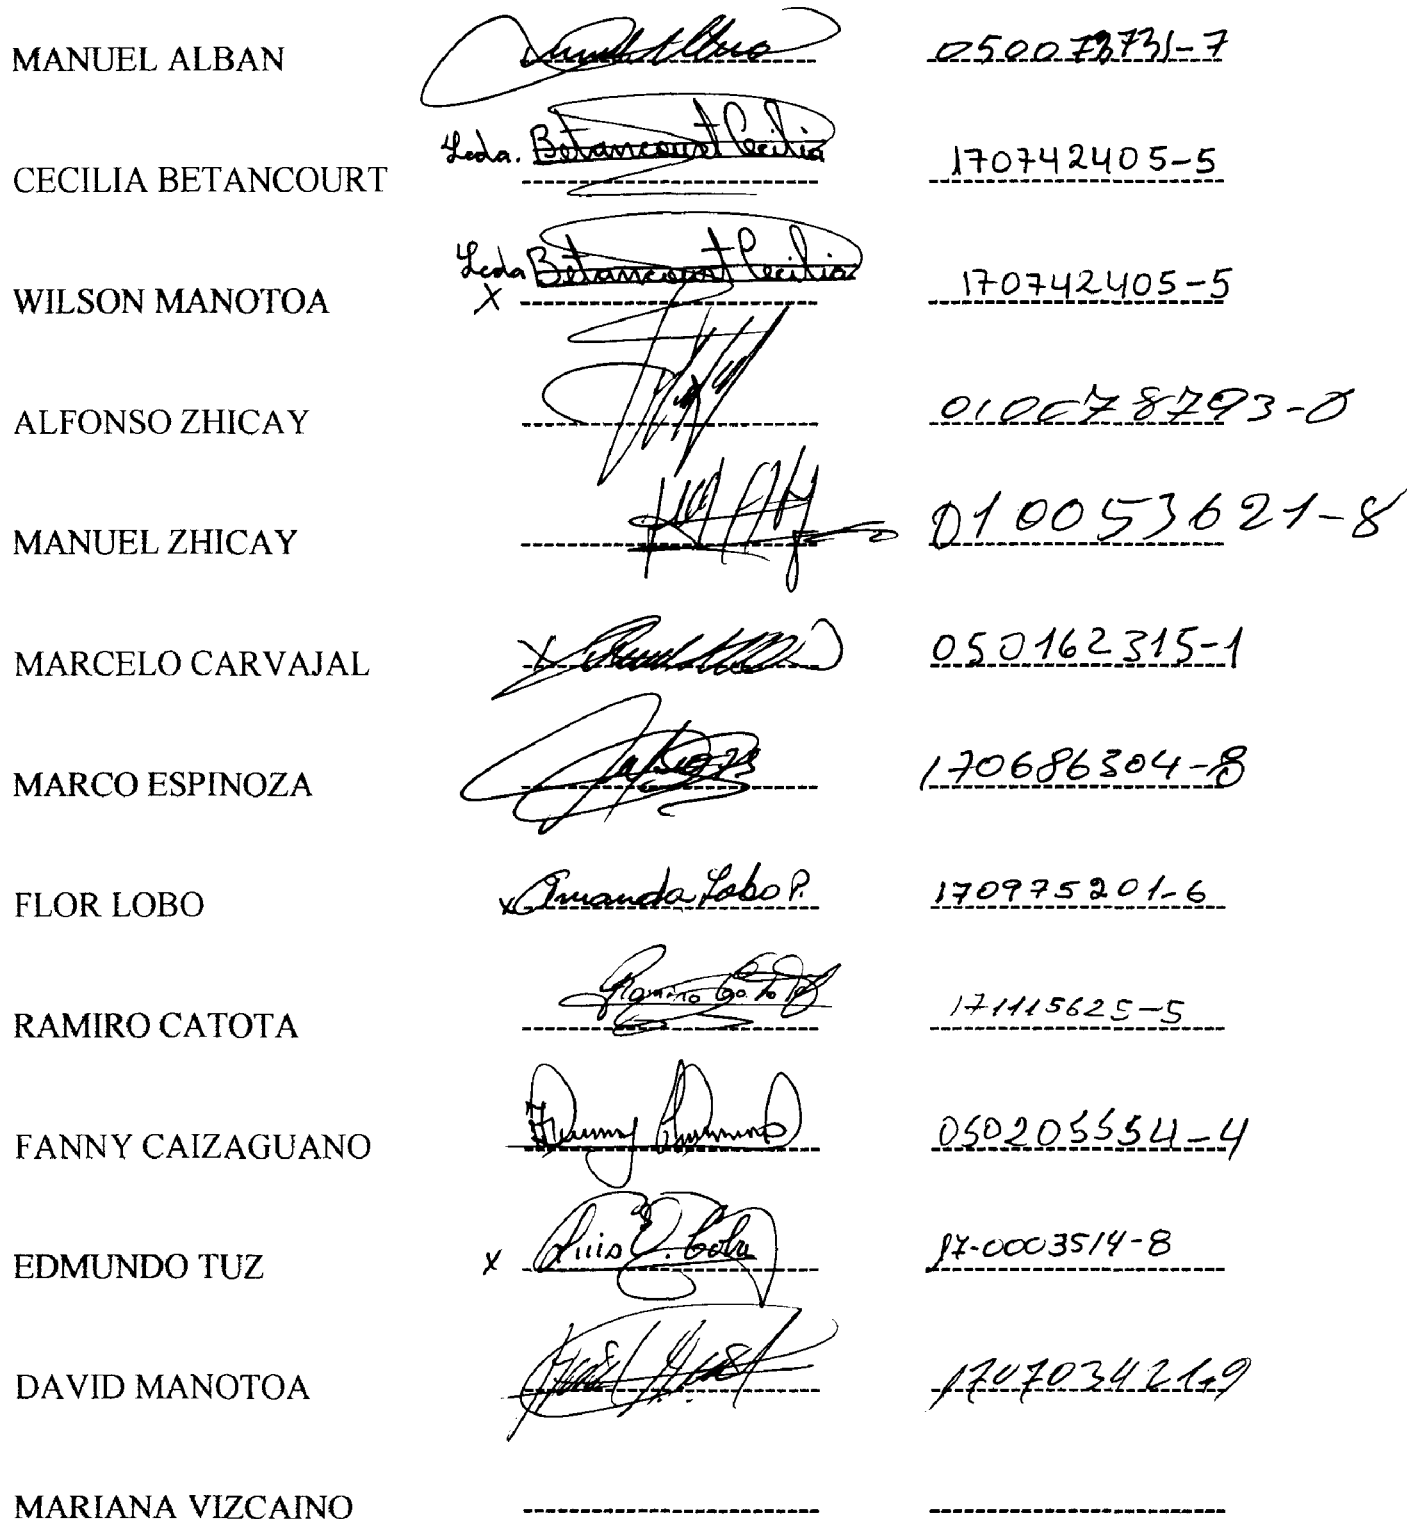 MANUEL ALBAN 050073731-7
CECILIA BETANCOURT Lcda. Betancourt Cecilia 170742405-5
WILSON MANOTOA Lcda Betancourt Cecilia X 170742405-5
ALFONSO ZHICAY 010078793-0
MANUEL ZHICAY 010053621-8
MARCELO CARVAJAL X 050162315-1
MARCO ESPINOZA 170686304-8
FLOR LOBO x Amanda Lobo P. 170975201-6
RAMIRO CATOTA Ramiro Catota 171115625-5
FANNY CAIZAGUANO Fanny 050205554-4
EDMUNDO TUZ x Luis E. 17-0003514-8
DAVID MANOTOA 170703421-9
MARIANA VIZCAINO